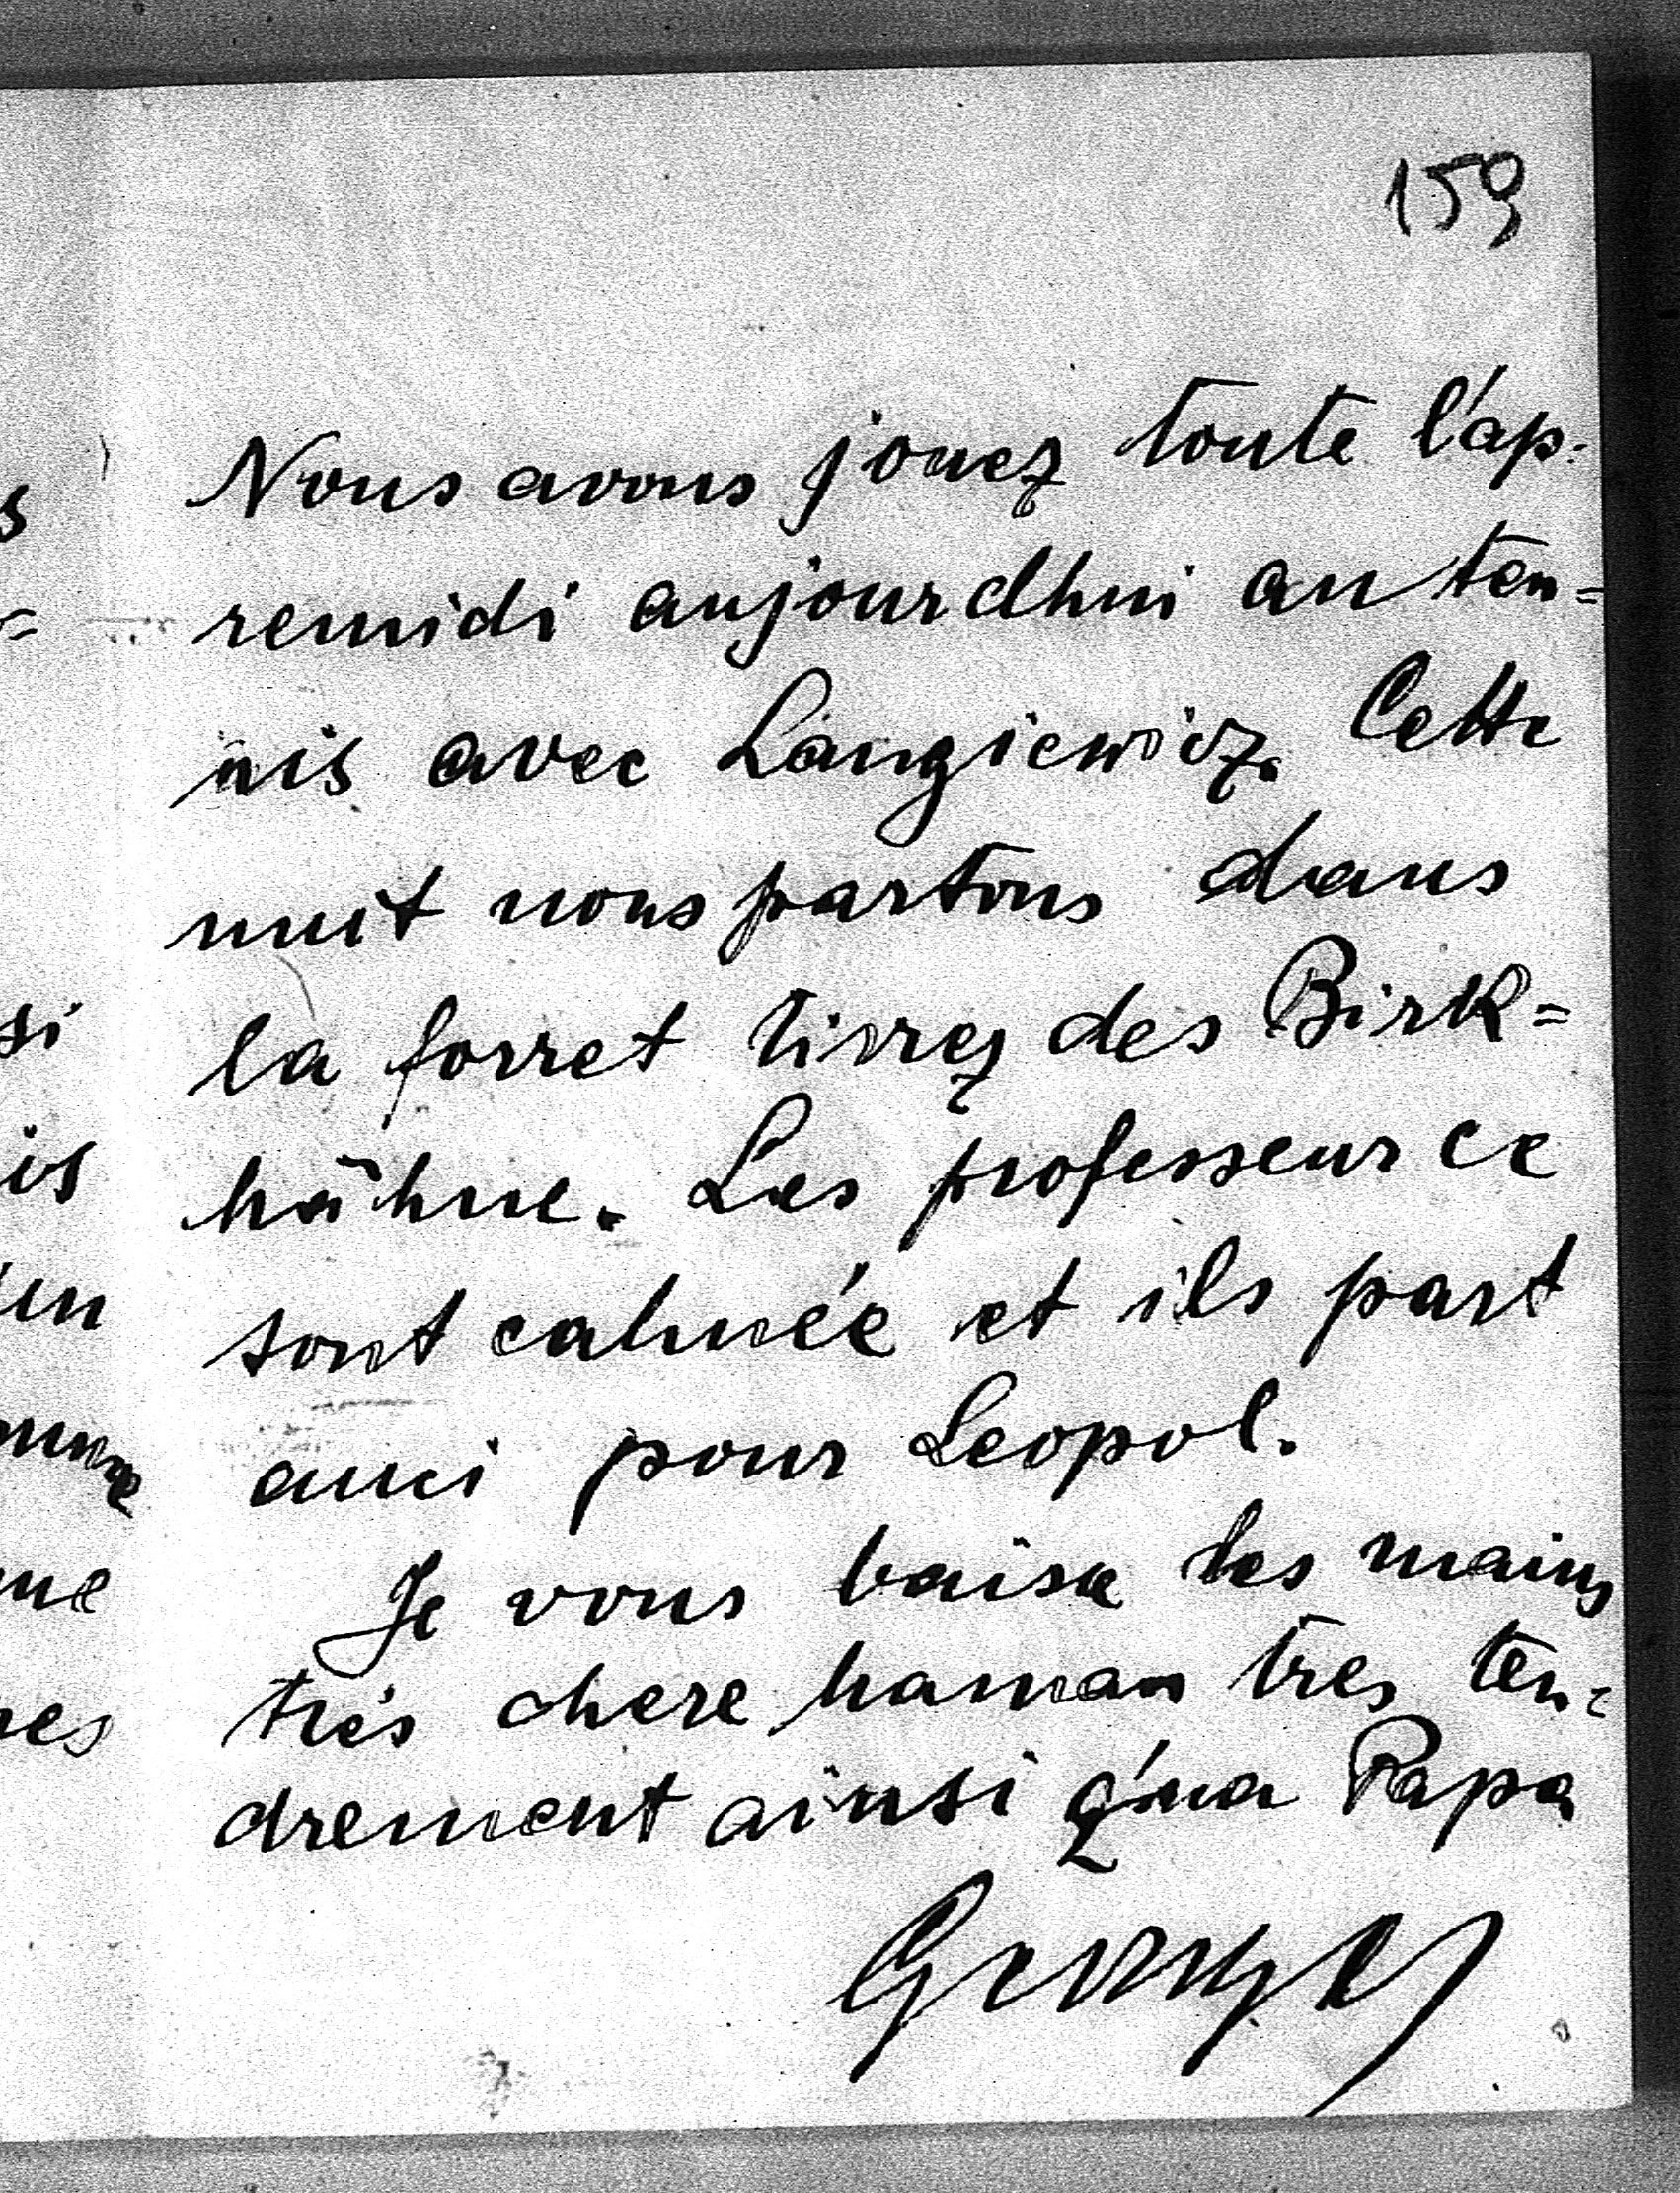 159
Nous avons jouez toute l'ap-
remidi aujourdhui au ten=
nis avec Langiewicz. Cette
nuit nous partons dans
la forret tirrez des Birk=
hähne. Les professeur ce
sont calmée et ils part
auci pour Leopol.
Je vous baise les mains
très chere maman tres ten=
drement ainsi q'ua Papa
Georges